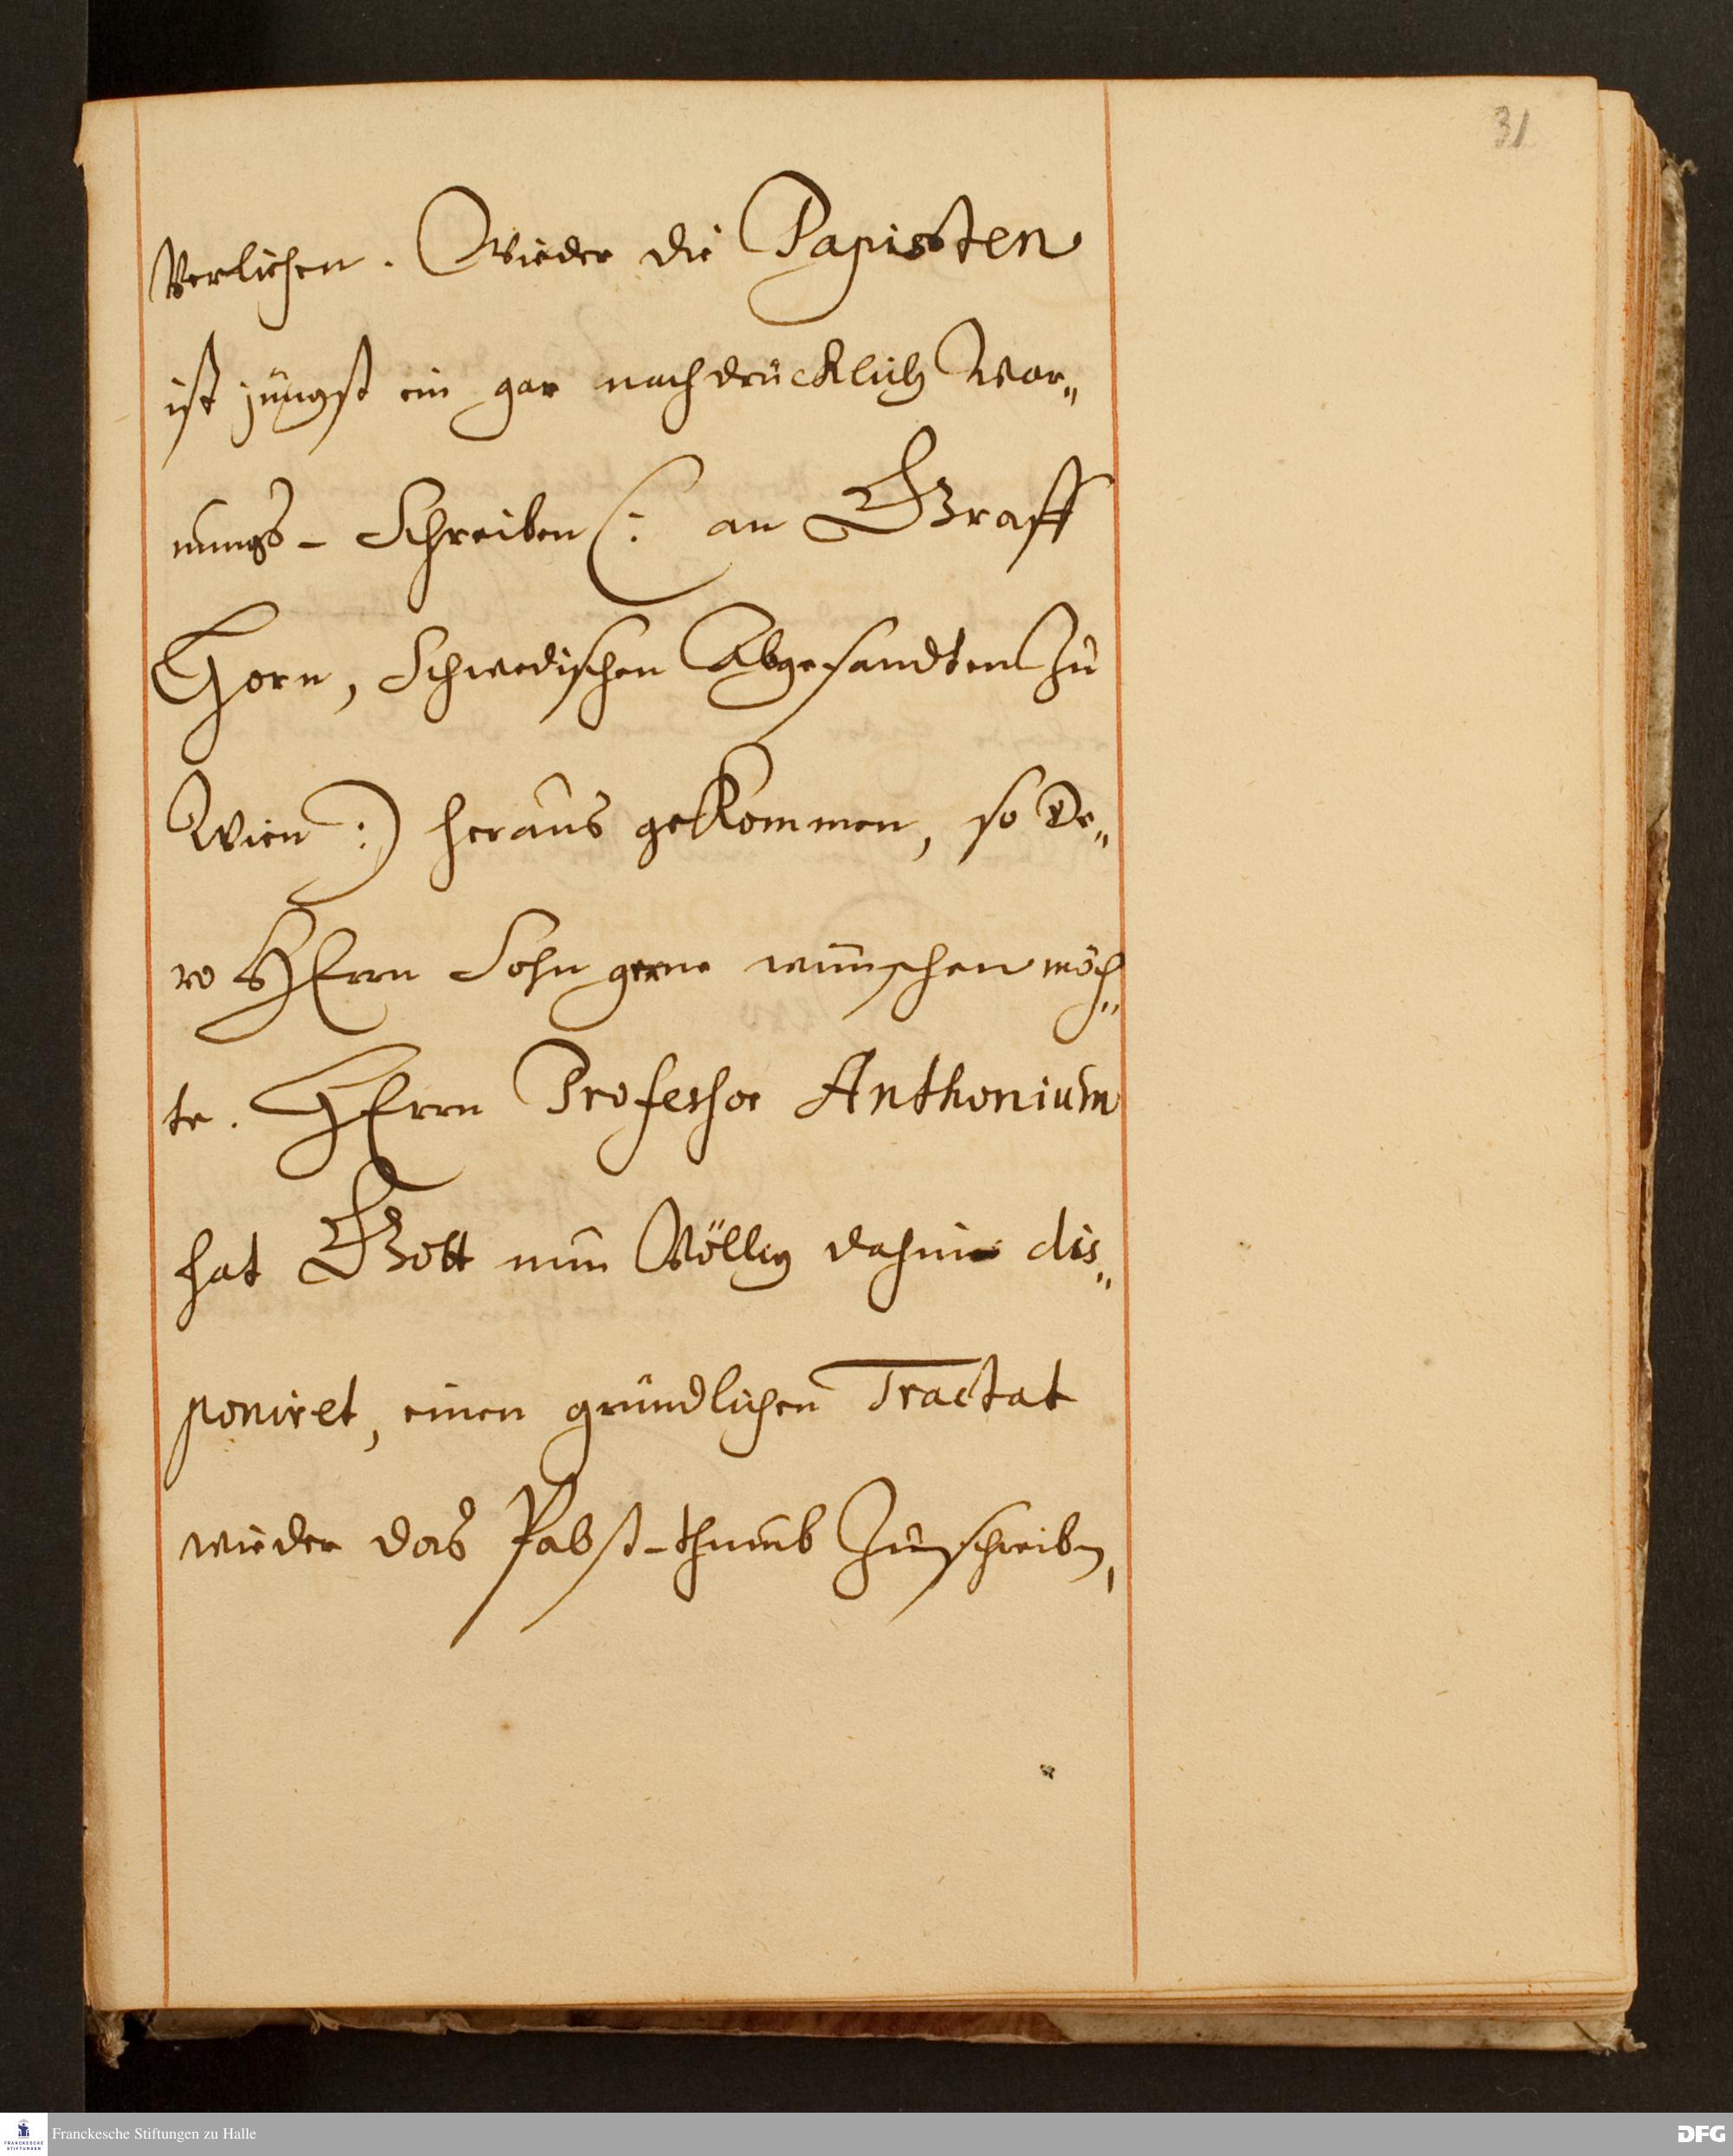 31
Verliehen. Wieder die Papisten
ist jüngst ein gar nachdrücklich War„
nungs-Schreiben (: an Graff
Horn, Schwedischen Abgesandten zu
Wien :) heraus gekommen, so De„
ro HErrn Sohn gerne wünschen möch„
te. HErrn Professor Anthonium
hat Gott nun Völlig dahin dis„
poniret, einen gründlichen Tractat
wieder das Pabst-thumb zu schreiben,
Franckesche Stiftungen zu Halle
FRANCKESCHE
STIFTUNGEN
DFG